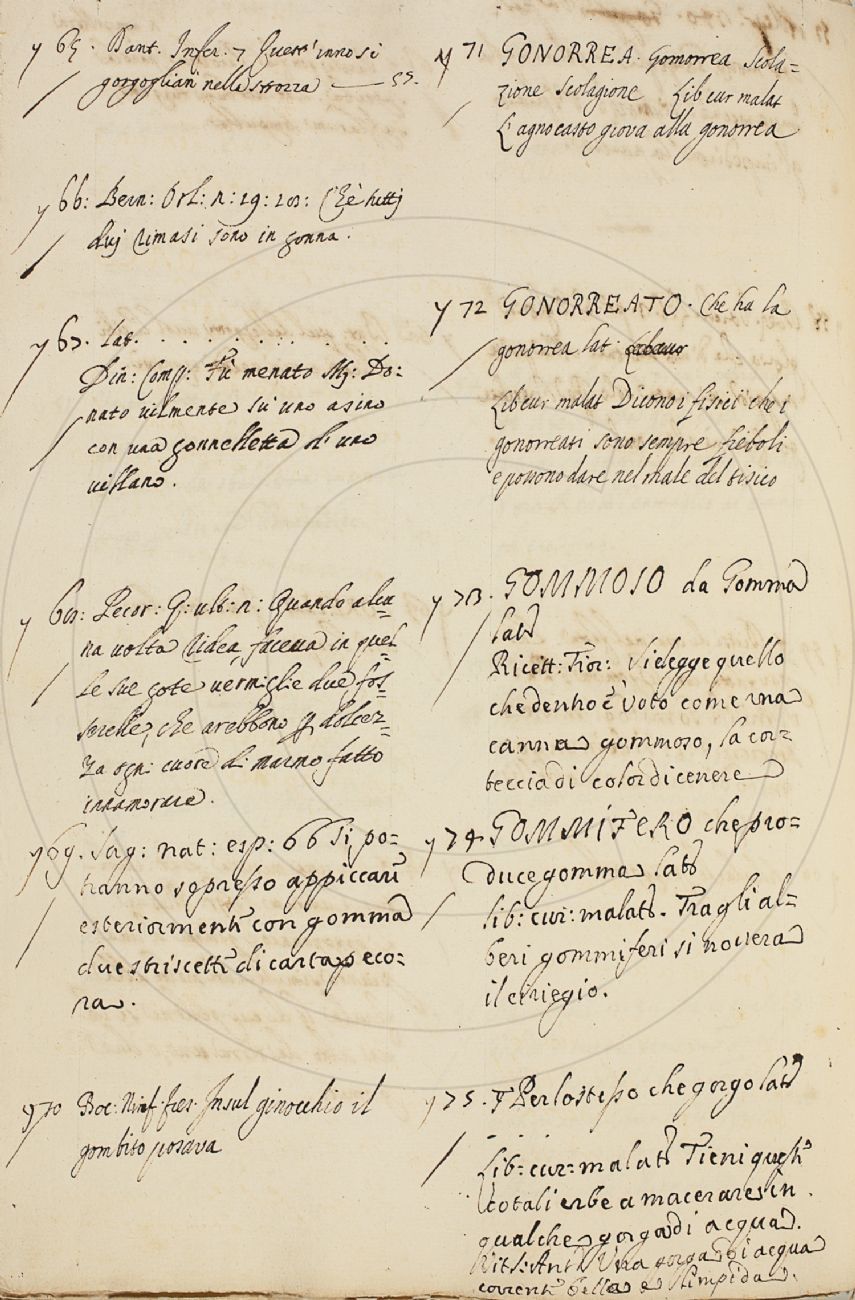 y 65. Dant. Infer. 7 Quest' inno si
gorgoglian nella strozza —— 57.
y 66: Bern: Orl: n: 29: 203: Chè tuttj
duj rimasi sono in gonna.
y 67. Lat. . . . . . . . . . . .
Din: Comp: Fù menato Mẏ: Do:
nato vilmente sù uno asino
con una gonnelletta di uno
villano.
y 68: Pecor: G: nlb: n: Quando alcu-
na volta ridea, faceua in quel-
le sue gote vermiglie due fos-
serelle, che arebbono p dolcez-
za ogni cuore di marmo fatto
innamorare.
y 69. Sag: nat: esp: 66 Si po-
tranno sopresso appiccare
esteriormente con gomma
due striscette di carta peco:
ra.
y 70 Boc: Ninf. fies. Insul ginocchio il
gombito posava
y 71 GONORREA. Gomorrea Scola=
zione Scolagione Lib cur malat
L'agnocasto giova alla gonorrea
y 72 GONORREATO. Che ha la
gonorrea lat.
Lib cur malat Dicono i fisici che i
gonorreati sono sempre fieboli
e possono dare nel male del tisico
y 73. GOMMOSO da Gomma
lat
Ricett: Fior: Si elegge quello
che dentro è voto come una
canna gommoso, la cor=
teccia di color di cenere
y 74 GOMMIFERO che pro=
duce gomma lat
Lib: cur: malat. Tra gli al=
beri gommiferi si novera
il ciriegio.
y 75. Per lo stesso che gorgo lat
Lib: cur: malat Tieni queste
cotali erbe a macerare in
qualche gorga di acqua.
Vit S. Ant: Una gorga di acqua
corrente bella e limpida.